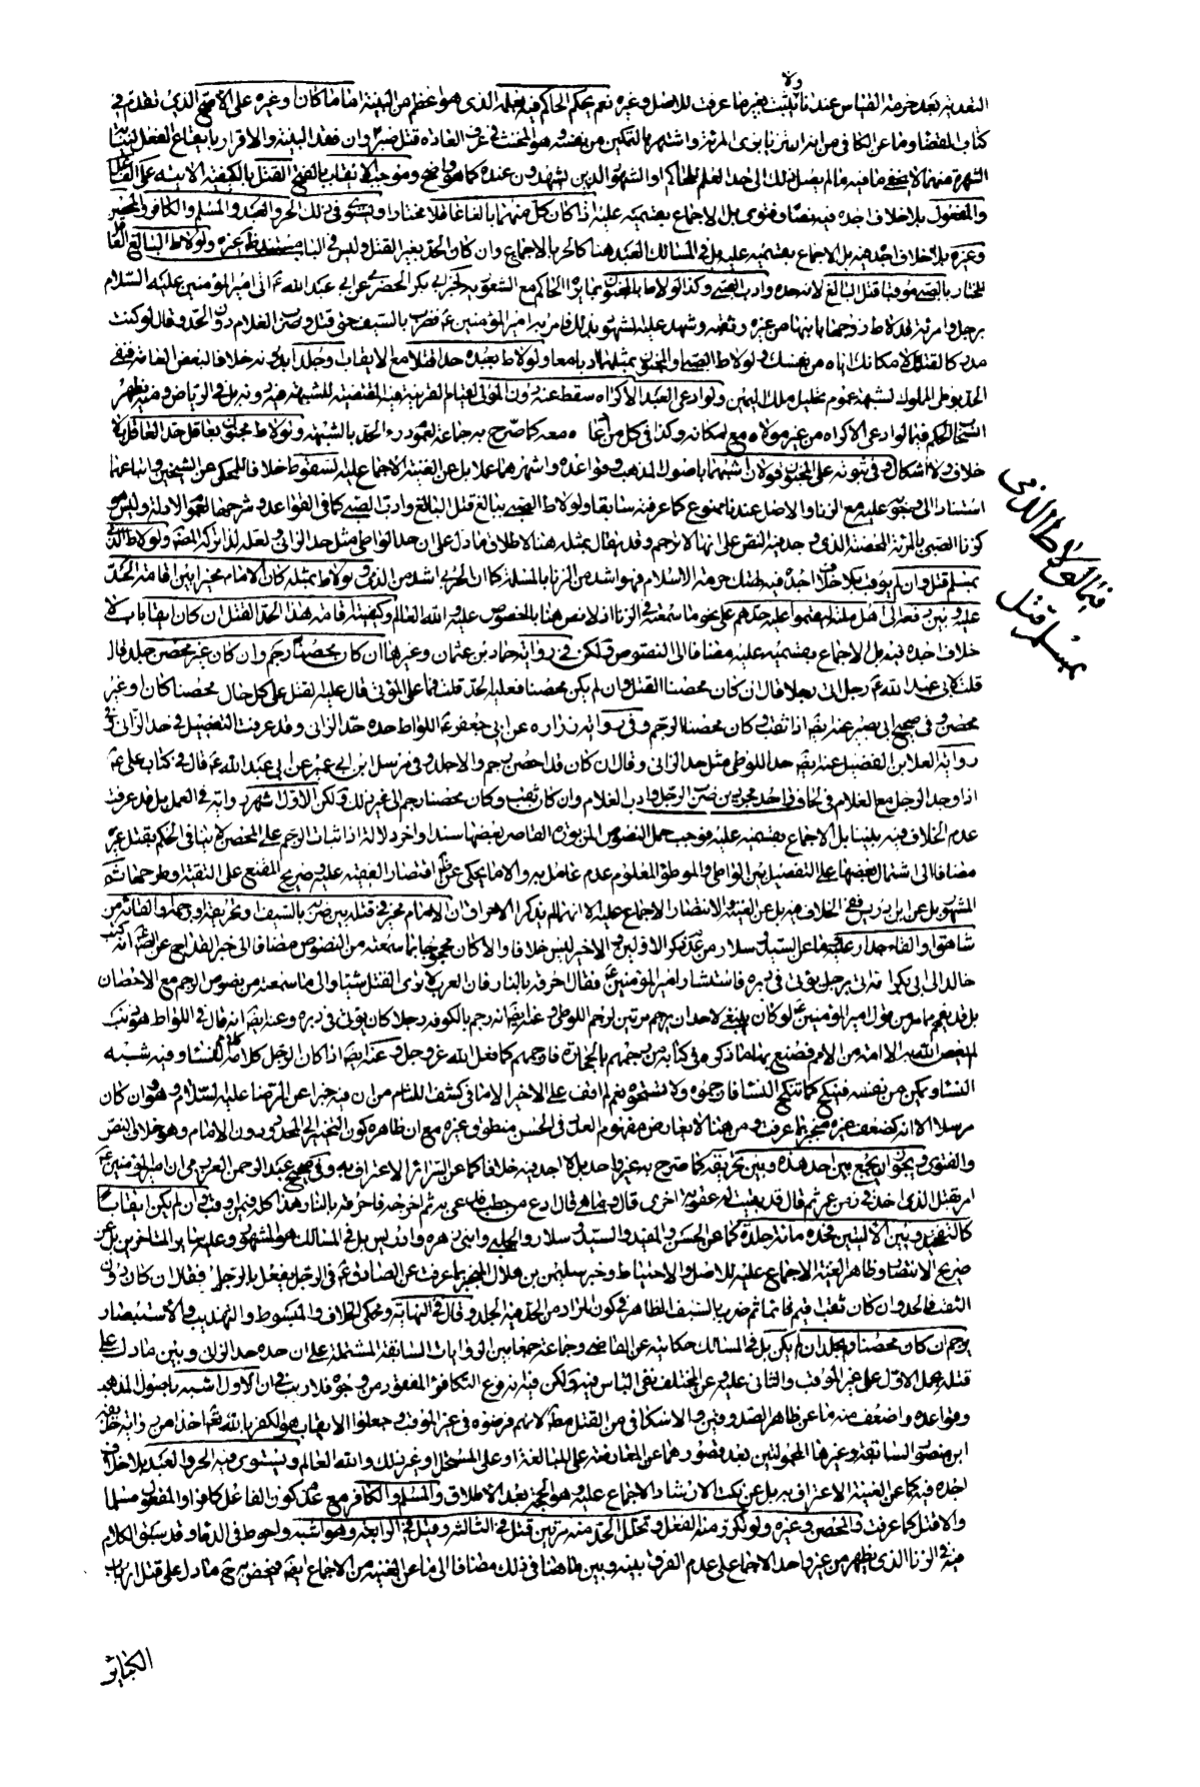 ولا
التعدية بعد حرمة القياس عندنا يثبت بغير ما عرفت للاصل وغيره نعم يحكم الحاكم فيه بعلمه الذى هو اعظم من البينة اماما كان او غيره على الاصح الذى تقدم فى
كتاب القضاء وما عن الكافى من انه ان تزيا بزى المرئة واشتهر بالتمكين من نفسه وهو المخنث فى عرف العادة قتل صبرا وان فقد البينة والاقرار بايقاع الفعل لنيابة
الشهرة منهما لا يخفى ما فيه ما لم يصل ذلك الى حد العلم للحاكم او الشهود الذين يشهدون عنده كما هو واضح وموجب الايقاب بالفتح القتل بالكيفية الاتية على الفاعل
والمفعول بلا خلاف اجده فيه نصا وفتوى بل الاجماع بقسميه عليه اذا كان كل منهما بالغا عاقلا مختارا ويستوى فى ذلك الحر والعبد والمسلم والكافر والمحصن
وغيره بلا خلاف اجده فيه بل الاجماع بقسميه عليه بل فى المسالك العبد هنا كالحر بالاجماع وان كان الحد بغير القتل وليس فى الباب مستند ظاهر غيره ولو لاط البالغ العاقل
المختار بالصبى موقبا قتل البالغ لانه حده وادب الصبى وكذا لو لاط بالمجنون بما يراه الحاكم مع الشعور به لخبر ابى بكر الحضرمى عن ابى عبد الله ع اتى امير المؤمنين عليه السلام
برجل وامرئة قد لاط زوجها بابنها من غيره وثقبه وشهد عليه الشهود بذلك فامر به امير المؤمنين ع فضرب بالسيف حتى قتل وضرب الغلام دون الحد وقال لو كنت
مدركا لقتلتك لامكانك اياه من نفسك ولو لاط الصبى والمجنون بمثلهما ادبا معا ولو لاط بعبده حدا قتلا مع الايقاب وجلدا بدونه خلافا لبعض العامة فنفى
الحد بوطى المملوك لشبهة عموم تحليل ملك اليمين ولو ادعى العبد الاكراه سقط عنه دون المولى لقيام القرينة فيه المقتضية للشبهة فيه دونه بل فى الرياض ومنه يظهر
انسحاب الحكم فيما لو ادعى الاكراه من غير مولاه مع امكانه وكذا فى كل من ادعاه معه كما صرح به جماعة لعموم درء الحد بالشبهة ولو لاط مجنون بعاقل حد العاقل بلا
خلاف ولا اشكال وفى ثبوته على المجنون قولان اشبههما باصول المذهب وقواعده واشهرهما عملا بل عن الغنية الاجماع عليه السقوط خلافا للمحكى عن الشيخين واتباعهما
استنادا الى وجوبه عليه مع الزنا والاصل عندنا ممنوع كما عرفته سابقا ولو لاط الصبى ببالغ قتل البالغ وادب الصبى كما فى القواعد وشرحها لعموم الادلة وليس هو
كزنا الصبى بالمرئة المحصنة الذى وجد فيه النص على انها لا ترجم وقد يقال بمثله هنا لاطلاق ما دل على ان حد اللواطى مثل حد الزانى ولعله لذا تركه المصنف ولو لاط الذمى
بمسلم قتل وان لم يوقب بلا خلاف اجده فيه لهتك حرمة الاسلام فهو اشد من الزنا بالمسلمة كما ان الحربى اشد من الذمى ولو لاط بمثله كان الامام مخيرا بين اقامة الحد
عليه وبين دفعه الى اهل ملته ليقيموا عليه حدهم على نحو ما سمعته فى الزنا اذ لا نص هنا بالخصوص عليه والله العالم وكيفية اقامة هذا الحد القتل ان كان ايقابا بلا
خلاف اجده فيه بل الاجماع بقسميه عليه مضافا الى النصوص ولكن فى رواية حماد بن عثمان وغيرها ان كان محصنا رجم وان كان غير محصن جلد قال
قلت لابى عبد الله ع رجل اتى رجلا قال ان كان محصنا القتل وان لم يكن محصنا فعليه الحد قلت فما على المؤتى قال عليه القتل على كل حال محصنا كان او غير
محصن وفى صحيح ابى بصير عنه ايضا اذا ثقب وكان محصنا الرجم وفى رواية زرارة عن ابى جعفر ع اللواط حده حد الزانى وقد عرفت التفصيل فى حد الزانى وفى
رواية العلا بن الفضيل عنه ايضا حد اللوطى مثل حد الزانى وقال ان كان قد احصن رجم والا جلد وفى مرسل ابن ابى عمير عن ابى عبد الله ع قال فى كتاب على ع
اذا وجد الرجل مع الغلام فى لحاف واحد مجردين ضرب الرجل وادب الغلام وان كان ثقب وكان محصنا رجم الى غير ذلك ولكن الاول اشهر رواية فى العمل بل قد عرفت
عدم الخلاف فيه بيننا بل الاجماع بقسميه عليه فوجب حمل النصوص المزبورة القاصر بعضها سندا واخر دلالة اذ اثبات الرجم على المحصن لا ينافى الحكم بقتل غيره
مضافا الى اشتمال بعضها على التفصيل بين الواطى والموطوء المعلوم عدم عامل به والا ما يحكى عن ظاهر اقتصار الفقيه عليه وصريح المقنع على التقية او طرحها
المشهور بل عن ابن ادريس نفى الخلاف فيه بل عن الغنية والانتصار الاجماع عليه الا انهما لم يذكرا الاحراق ان الامام مخير فى قتله بين ضربه بالسيف او تحريقه او رجمه او القائه من
شاهق او القاء جدار عليه
خالد الى ابى بكر اتى برجل يؤتى فى دبره فاستشار امير المؤمنين ع فقال احرقه بالنار فان العرب لا ترى القتل شيئا والى ما سمعته من نصوص الرجم مع الاحصان
بل قد يفهم مما من قول امير المؤمنين ع لو كان ينبغى لاحد ان يرجم مرتين لرجم اللوطى وعنه ايضا انه رجم بالكوفة رجلا كان يؤتى فى دبره وعنه ايضا انه قال فى اللواط هو ذنب
كلامه
النساء ويمكن من نفسه فينكح كما تنكح النساء فارجموه ولا تستحيوه نعم لم اقف على الاخير الا ما فى كشف اللثام من ان فيه خبرا عن الرضا عليه السلام وهو وان كان
مرسلا الا انه كضعف غيره منجبر بما عرفت ومن هنا لا يعارض مفهوم العدد فى الحسن منطوق غيره مع ان ظاهره كون التخيير الى المحدود دون الامام وهو خلاف النص
والفتوى ويجوز ان يجمع بين احد هذه وبين تحريقه كما صرح به غير واحد بل لا اجد فيه خلافا كما عن السرائر الاعتراف به وفى صحيح عبد الرحمن العرزمى ان امير المؤمنين ع
امر بقتل الذى اخذ فى زمن عمر ثم قال قد بقيت له عقوبة اخرى قال وما هى قال ادع بحطب فدعى به ثم اخرجه فاحرقه بالنار هذا كله فيمن وقب وان لم يكن ايقاب
كالتفخيذ وبين الاليتين فحده مائة جلدة كما عن الحسن والمفيد والسيد وسلار والحلبى وابنى زهرة وادريس بل فى المسالك هو المشهور وعليه ساير المتاخرين بل عن
صريح الانتصار وظاهر الغنية الاجماع عليه للاصل والاحتياط وخبر سليمن بن هلال المنجبر بما عرفت عن الصادق ع فى الرجل يفعل بالرجل فقال ان كان دون
الثقب فالحد وان كان ثقب اقيم قائما ثم ضرب بالسيف الظاهر فى كون المراد من الحد فيه الجلد وقال فى النهاية ومحكى الخلاف والمبسوط والتهذيب والاستبصار
يرجم ان كان محصنا ويجلد ان لم يكن بل فى المسالك حكايته عن القاضى وجماعة جمعا بين الروايات السابقة المشتملة على ان حده حد الزانى وبين ما دل على
قتله بحمل الاول على غير الموقب والثانى عليه وعن المختلف نفى الباس فيه ولكن فيه انه فرع التكافؤ المفقود من وجوه فلا ريب فى ان الاول اشبه باصول المذهب
وقواعده واضعف منه ما عن ظاهر الصدوقين والاسكافى من القتل مطلقا لانهم فرضوه فى غير الموقب وجعلوا الايقاب هو الكفر بالله تعالى اخذا من رواية حذيفة بن
منصور السابقة وغيرها المحمولتين بعد قصورهما عن المعارضة على المبالغة او على المستحل وغير ذلك والله العالم ويستوى فيه الحر والعبد بلا خلاف
اجده فيه كما عن الغنية الاعتراف به بل عن نكت الارشاد الاجماع عليه وهو الحجة بعد الاطلاق والمسلم والكافر مع عدم كون الفاعل كافرا والمفعول مسلما
والا قتل كما عرفت والمحصن وغيره ولو تكرر منه الفعل وتخلل الحد منه مرتين قتل فى الثالثة وقيل فى الرابعة وهو اشبه واحوط فى الدماء وقد سبق الكلام
فيه فى الزنا الذى يظهر من غير واحد الاجماع على عدم الفرق بينه وبين ما هنا فى ذلك مضافا الى ما عن الغنية من الاجماع ايضا فيخص به ح ما دل على قتل ارباب
الكبائر
فيما لو لاط الذمى
بمسلم قتل